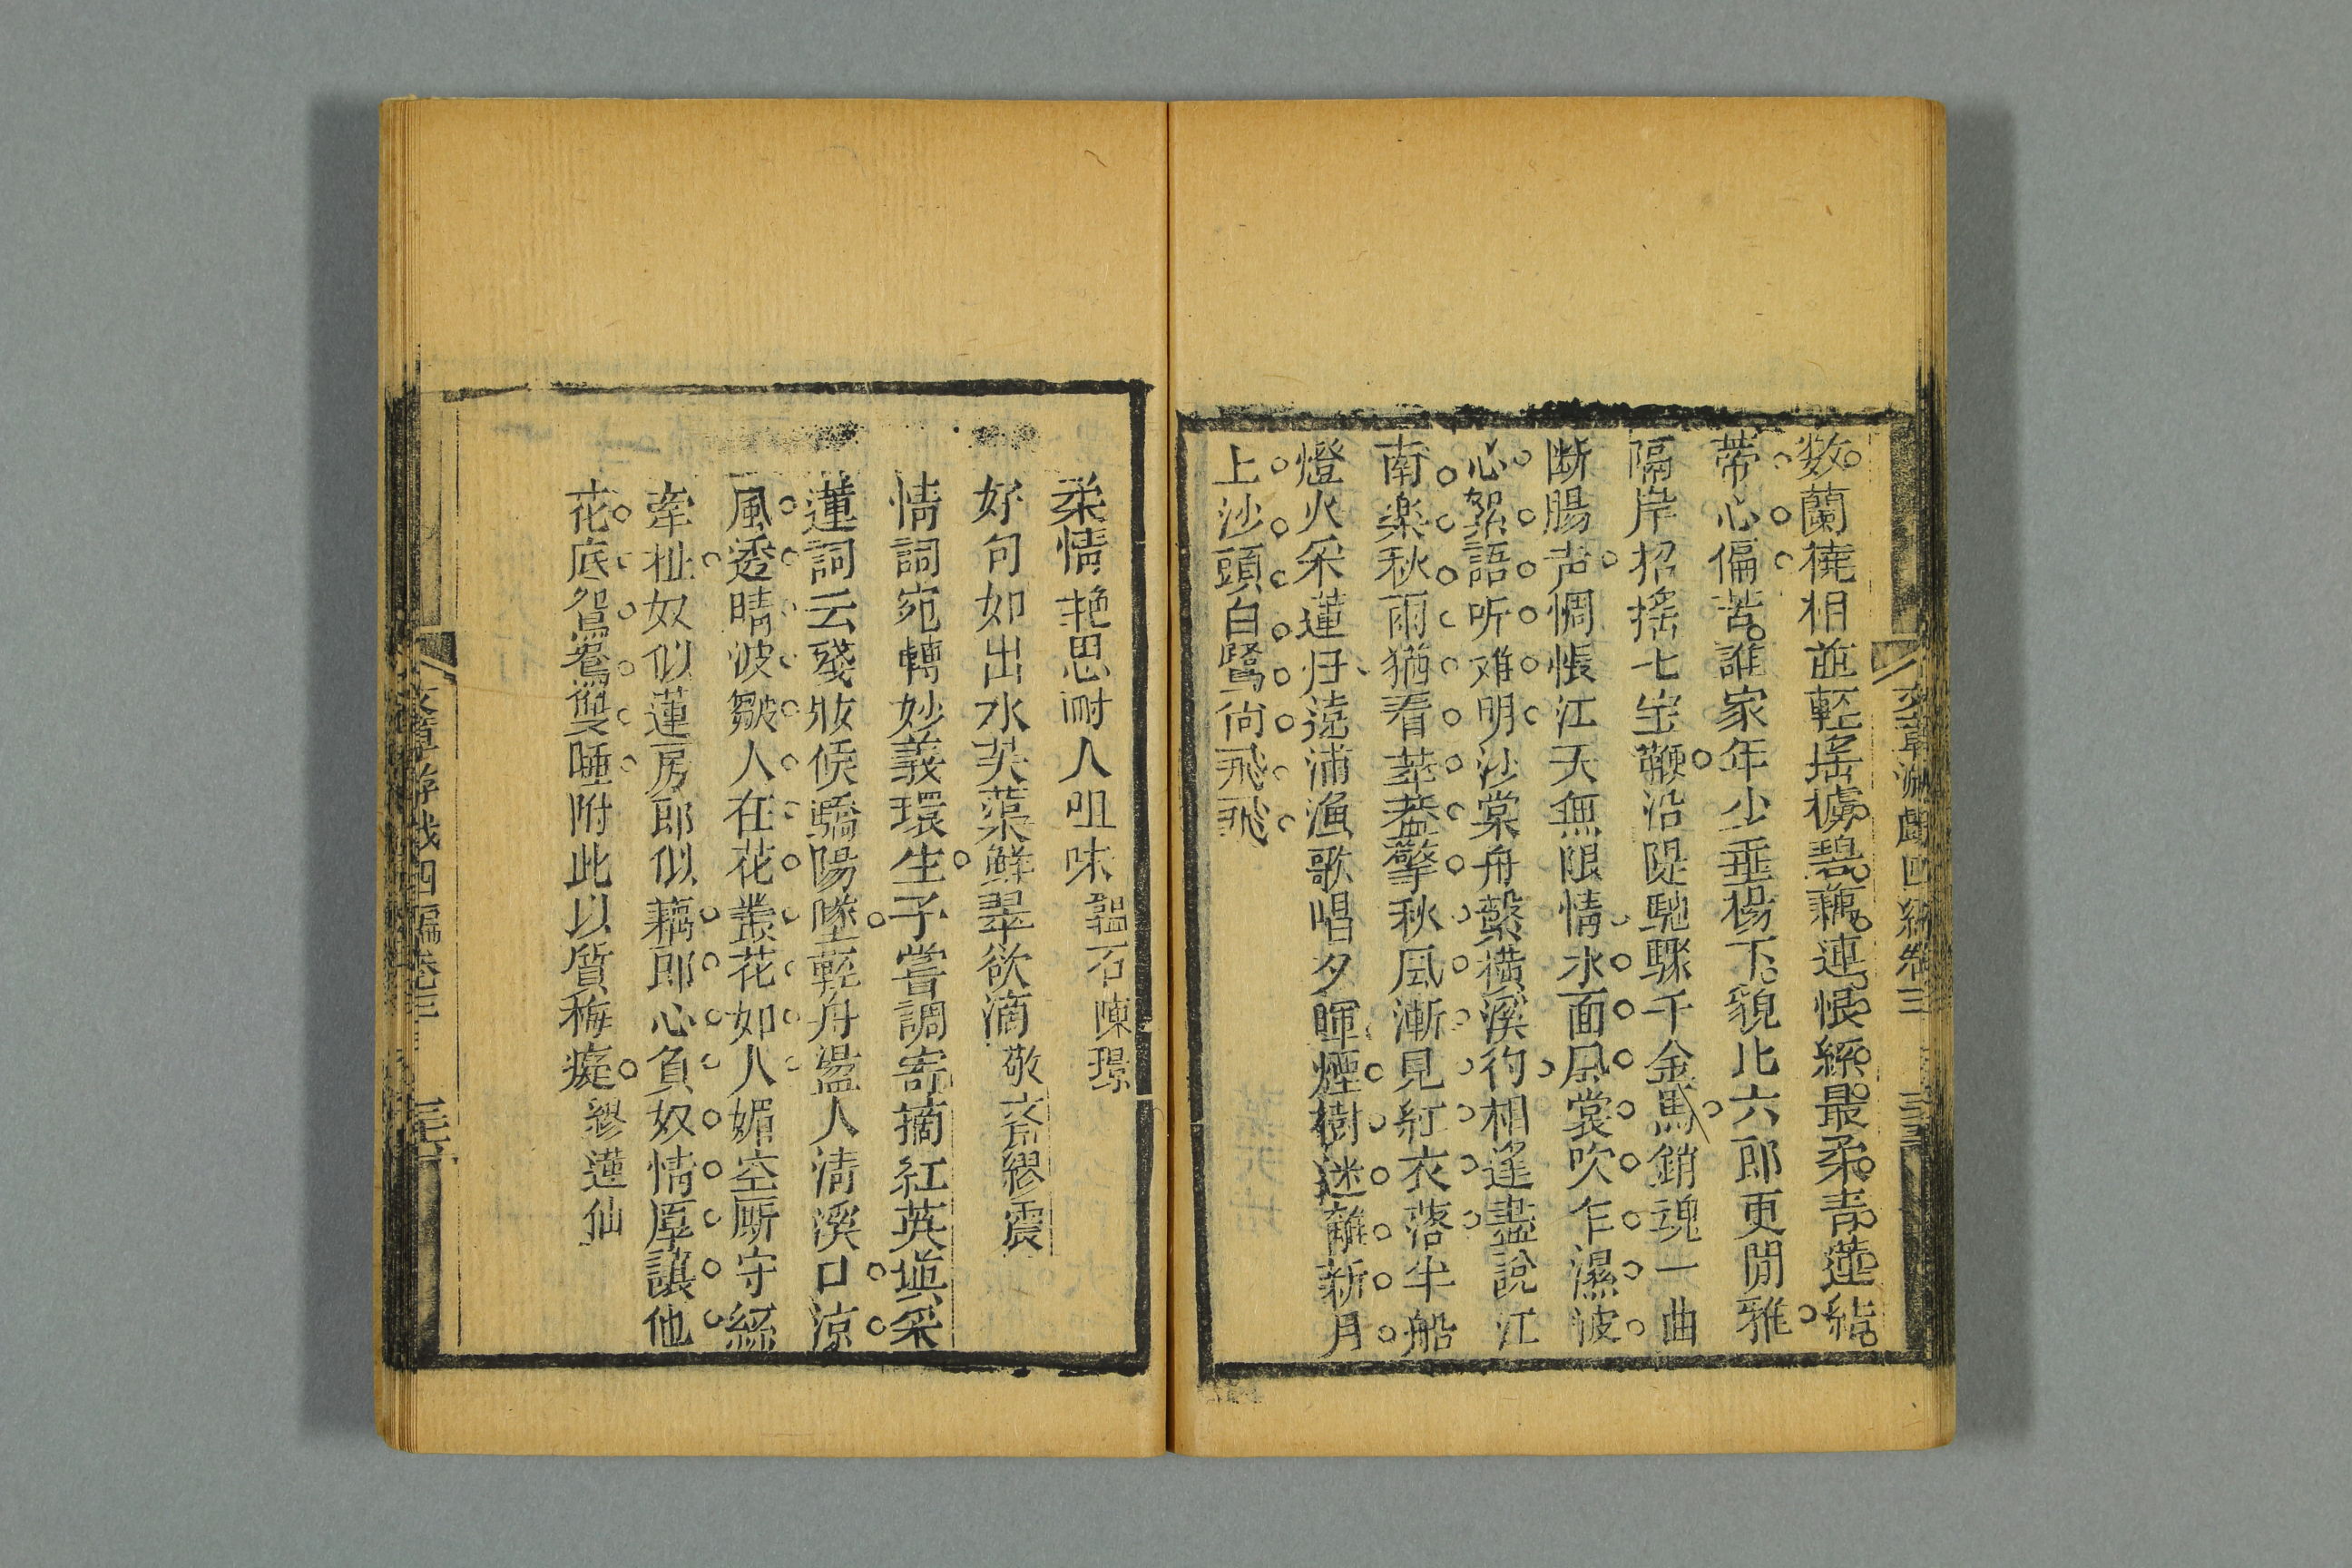 数蘭橈相並輕摇櫓碧藕連恨絲最柔青蓮結
蒂心偏苦誰家年少垂楊下貌比六郎更閒雅
隔岸招摇七宝鞭沿隄馳驟千金馬銷魂一曲
断腸声惆悵江天無限情水面風裳吹乍濕波
心絮語听难明沙棠舟檠横溪彴相逢盡說江
南楽秋雨猶看葉蓋擎秋風漸見紅衣落半船
燈火采蓮归遠浦漁歌唱夕暉煙樹迷離新月
上沙頭白鷺尙飛飛
柔情艳思耐人咀味 韞石陳璟
好句如出水芙蕖鮮翠欲滴 敬斎繆震
情詞宛轉妙義環生予嘗調寄摘紅英填采
蓮詞云殘妝倏驕陽墜輕舟盪人清溪口涼
風透晴波皺人在花叢花如人媚空厮守絲
牽扯奴似蓮房郎似藕郎心負奴情厚讓他
花底鴛鴦雙睡附此以質梅癡 繆蓮仙
文章游戲四編卷三